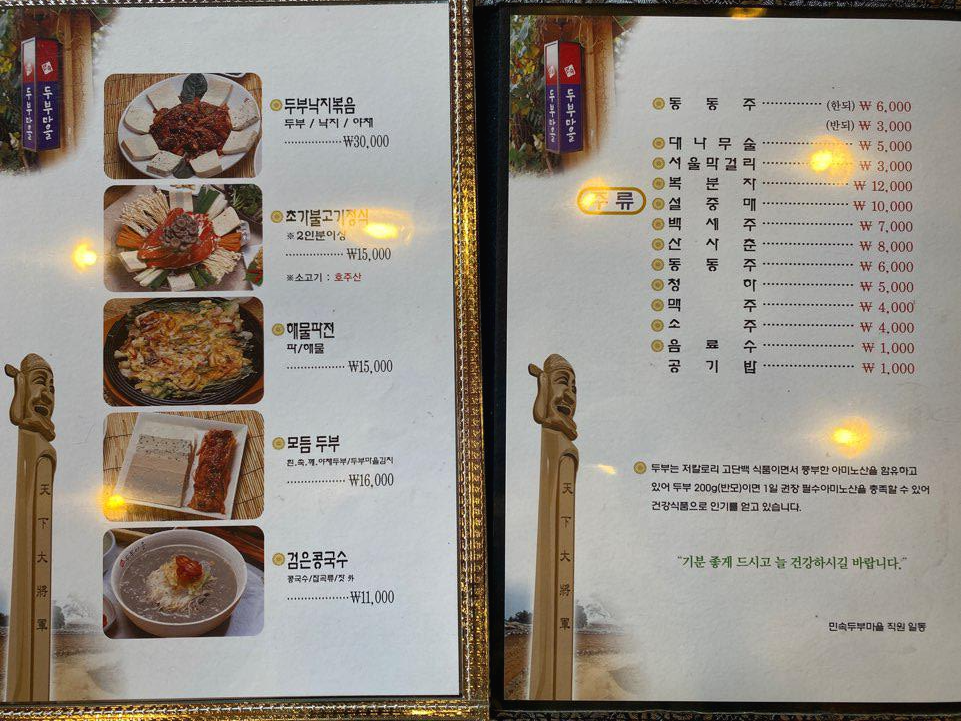 두부마을
두부낙지볶음
두부 / 낙지 / 야채
₩30,000
초가불고기정식
※2인분이상
₩15,000
※소고기 : 호주산
해물파전
파/해물
₩15,000
모듬 두부
흰,쑥,깨,야채두부/두부마을김치
₩16,000
검은콩국수
콩국수/잡곡류/잣 外
₩11,000
天下大將軍
두부마을
주류
동동주 (한되) ₩ 6,000
(반되) ₩ 3,000
대나무술 ₩ 5,000
서울막걸리 ₩ 3,000
복분자 ₩ 12,000
설중매 ₩ 10,000
백세주 ₩ 7,000
산사춘 ₩ 8,000
동동주 ₩ 6,000
청하 ₩ 5,000
맥주 ₩ 4,000
소주 ₩ 4,000
음료수 ₩ 1,000
공기밥 ₩ 1,000
두부는 저칼로리 고단백 식품이면서 풍부한 아미노산을 함유하고
있어 두부 200g(반모)이면 1일 권장 필수아미노산을 충족할 수 있어
건강식품으로 인기를 얻고 있습니다.
“기분 좋게 드시고 늘 건강하시길 바랍니다.”
민속두부마을 직원 일동
天下大將軍